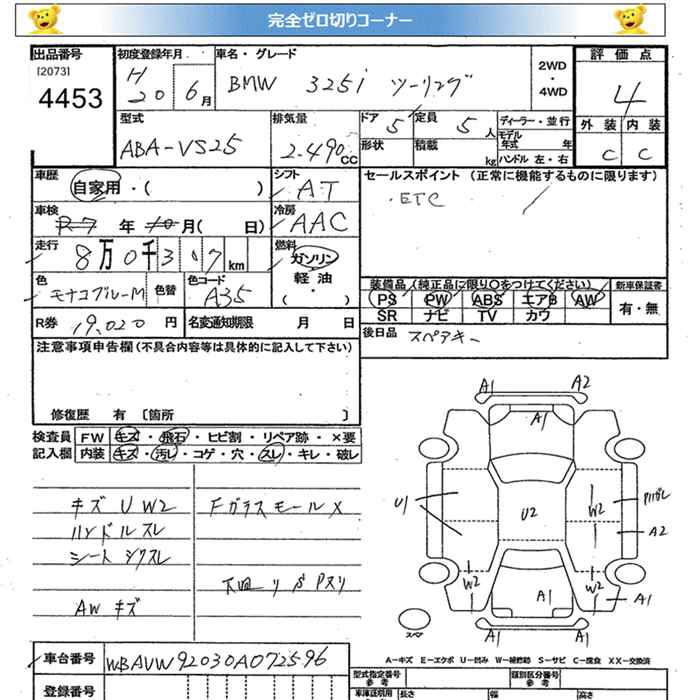 完全ゼロ切りコーナー
出品番号 初度登録年月 車名・グレード 2WD・4WD 評価点
[2073]
4453 H20 6月 BMW 325i ツーリング 4
型式 排気量 ドア 定員 ディーラー・並行 外装 内装
ABA-VS25 2.490CC 5 5人 モデル年式 年 C C
形状 積載 kg ハンドル 左・右
車歴 シフト セールスポイント(正常に機能するものに限ります)
自家用・( ) AT ETC
車検 冷房
R7年10月( 日) AAC
走行 燃料
8万0千317km ガソリン
色 色替 色コード 軽油 装備品(純正品に限り○をつけてください) 新車保証書
モナコブルーM A35 ・( ) PS PW ABS エアB AW 有・無
SR ナビ TV カワ
R券 19,020円 名変通知期限 月 日 後日品 スペアキー
注意事項申告欄(不具合内容等は具体的に記入して下さい)
修復歴 有 [箇所 ]
検査員 FW キズ・飛石・ヒビ割・リペア跡・×要
記入欄 内装 キズ・汚レ・コゲ・穴・スレ・キレ・破レ
キズ U W2 FガラスモールX
ハンドルスレ
シート シワスレ
下回りサビ Pスリ
AW キズ
A1 A2
A1
U1 U2 W2 A2
W2 W2
A1 A1
A1 A1
スペア
A-キズ E-エクボ U-凹み W-補修跡 S-サビ C-腐食 XX-交換済
車台番号 WBAVW92030A072596
登録番号
型式指定番号 参考 類別区分番号 参考
長さ 幅 高さ